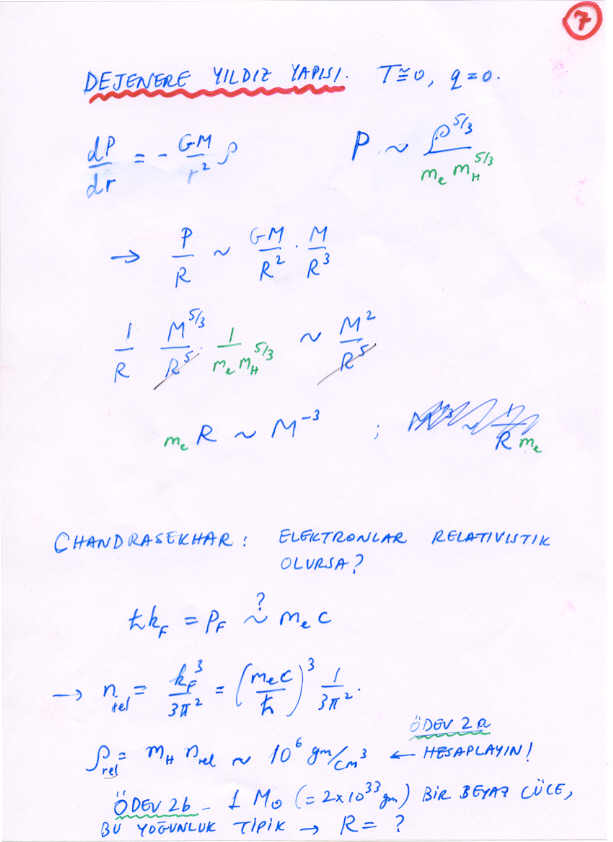 7
DEJENERE YILDIZ YAPISI. T≅0, q=0.
dP/dr = - GM/r² ρ     P ~ ρ^5/3 / m_e m_H^5/3
→ P/R ~ GM/R² · M/R³
1/R M^5/3/R⁵ 1/m_e m_H^5/3 ~ M²/R⁵
m_e R ~ M⁻³ ; R m_e
CHANDRASEKHAR: ELEKTRONLAR RELATIVISTIK
OLURSA?
ħk_F = P_F ~? m_e c
→ n_rel = k_F³/3π² = (m_e c/ħ)³ 1/3π².
ÖDEV 2a
ρ_rel = m_H n_rel ~ 10⁶ gm/cm³ ← HESAPLAYIN!
ÖDEV 2b - 1 M⊙ (= 2x10³³ gm) BİR BEYAZ CÜCE,
BU YOĞUNLUK TİPİK → R = ?